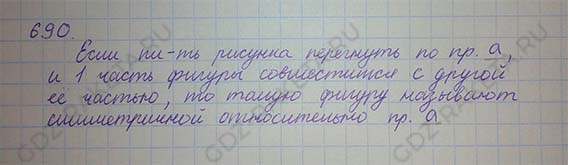 690.
Если пл-ть рисунка перегнуть по пр. а,
и 1 часть фигуры совместится с другой
её частью, то такую фигуру называют
симметричной относительно пр. а